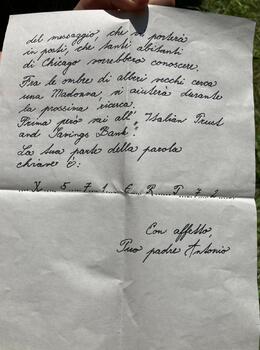 del messaggio che vi porterà
in posti, che tanti abitanti
di Chicago vorrebbero conoscere.
Fra le ombre di alberi vecchi cerca
una Madonna, vi aiuterà durante
la prossima ricerca.
Prima però vai all' "Italian Trust
and Savings Bank".
La tua parte della parola
chiave è:
X 5 7 1 E R T 7 2
Con affetto,
Tuo padre Antonio